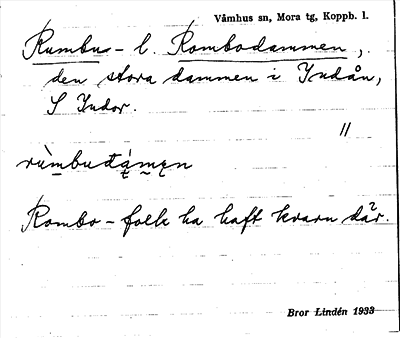 Våmhus sn, Mora tg, Koppb. l.
Rumbu- l. Rombodammen,
den stora dammen i Indån,
S Indor.
"
rùmbudä́męn
Rombo-folk ha haft kvarn där.
Bror Lindén 1933